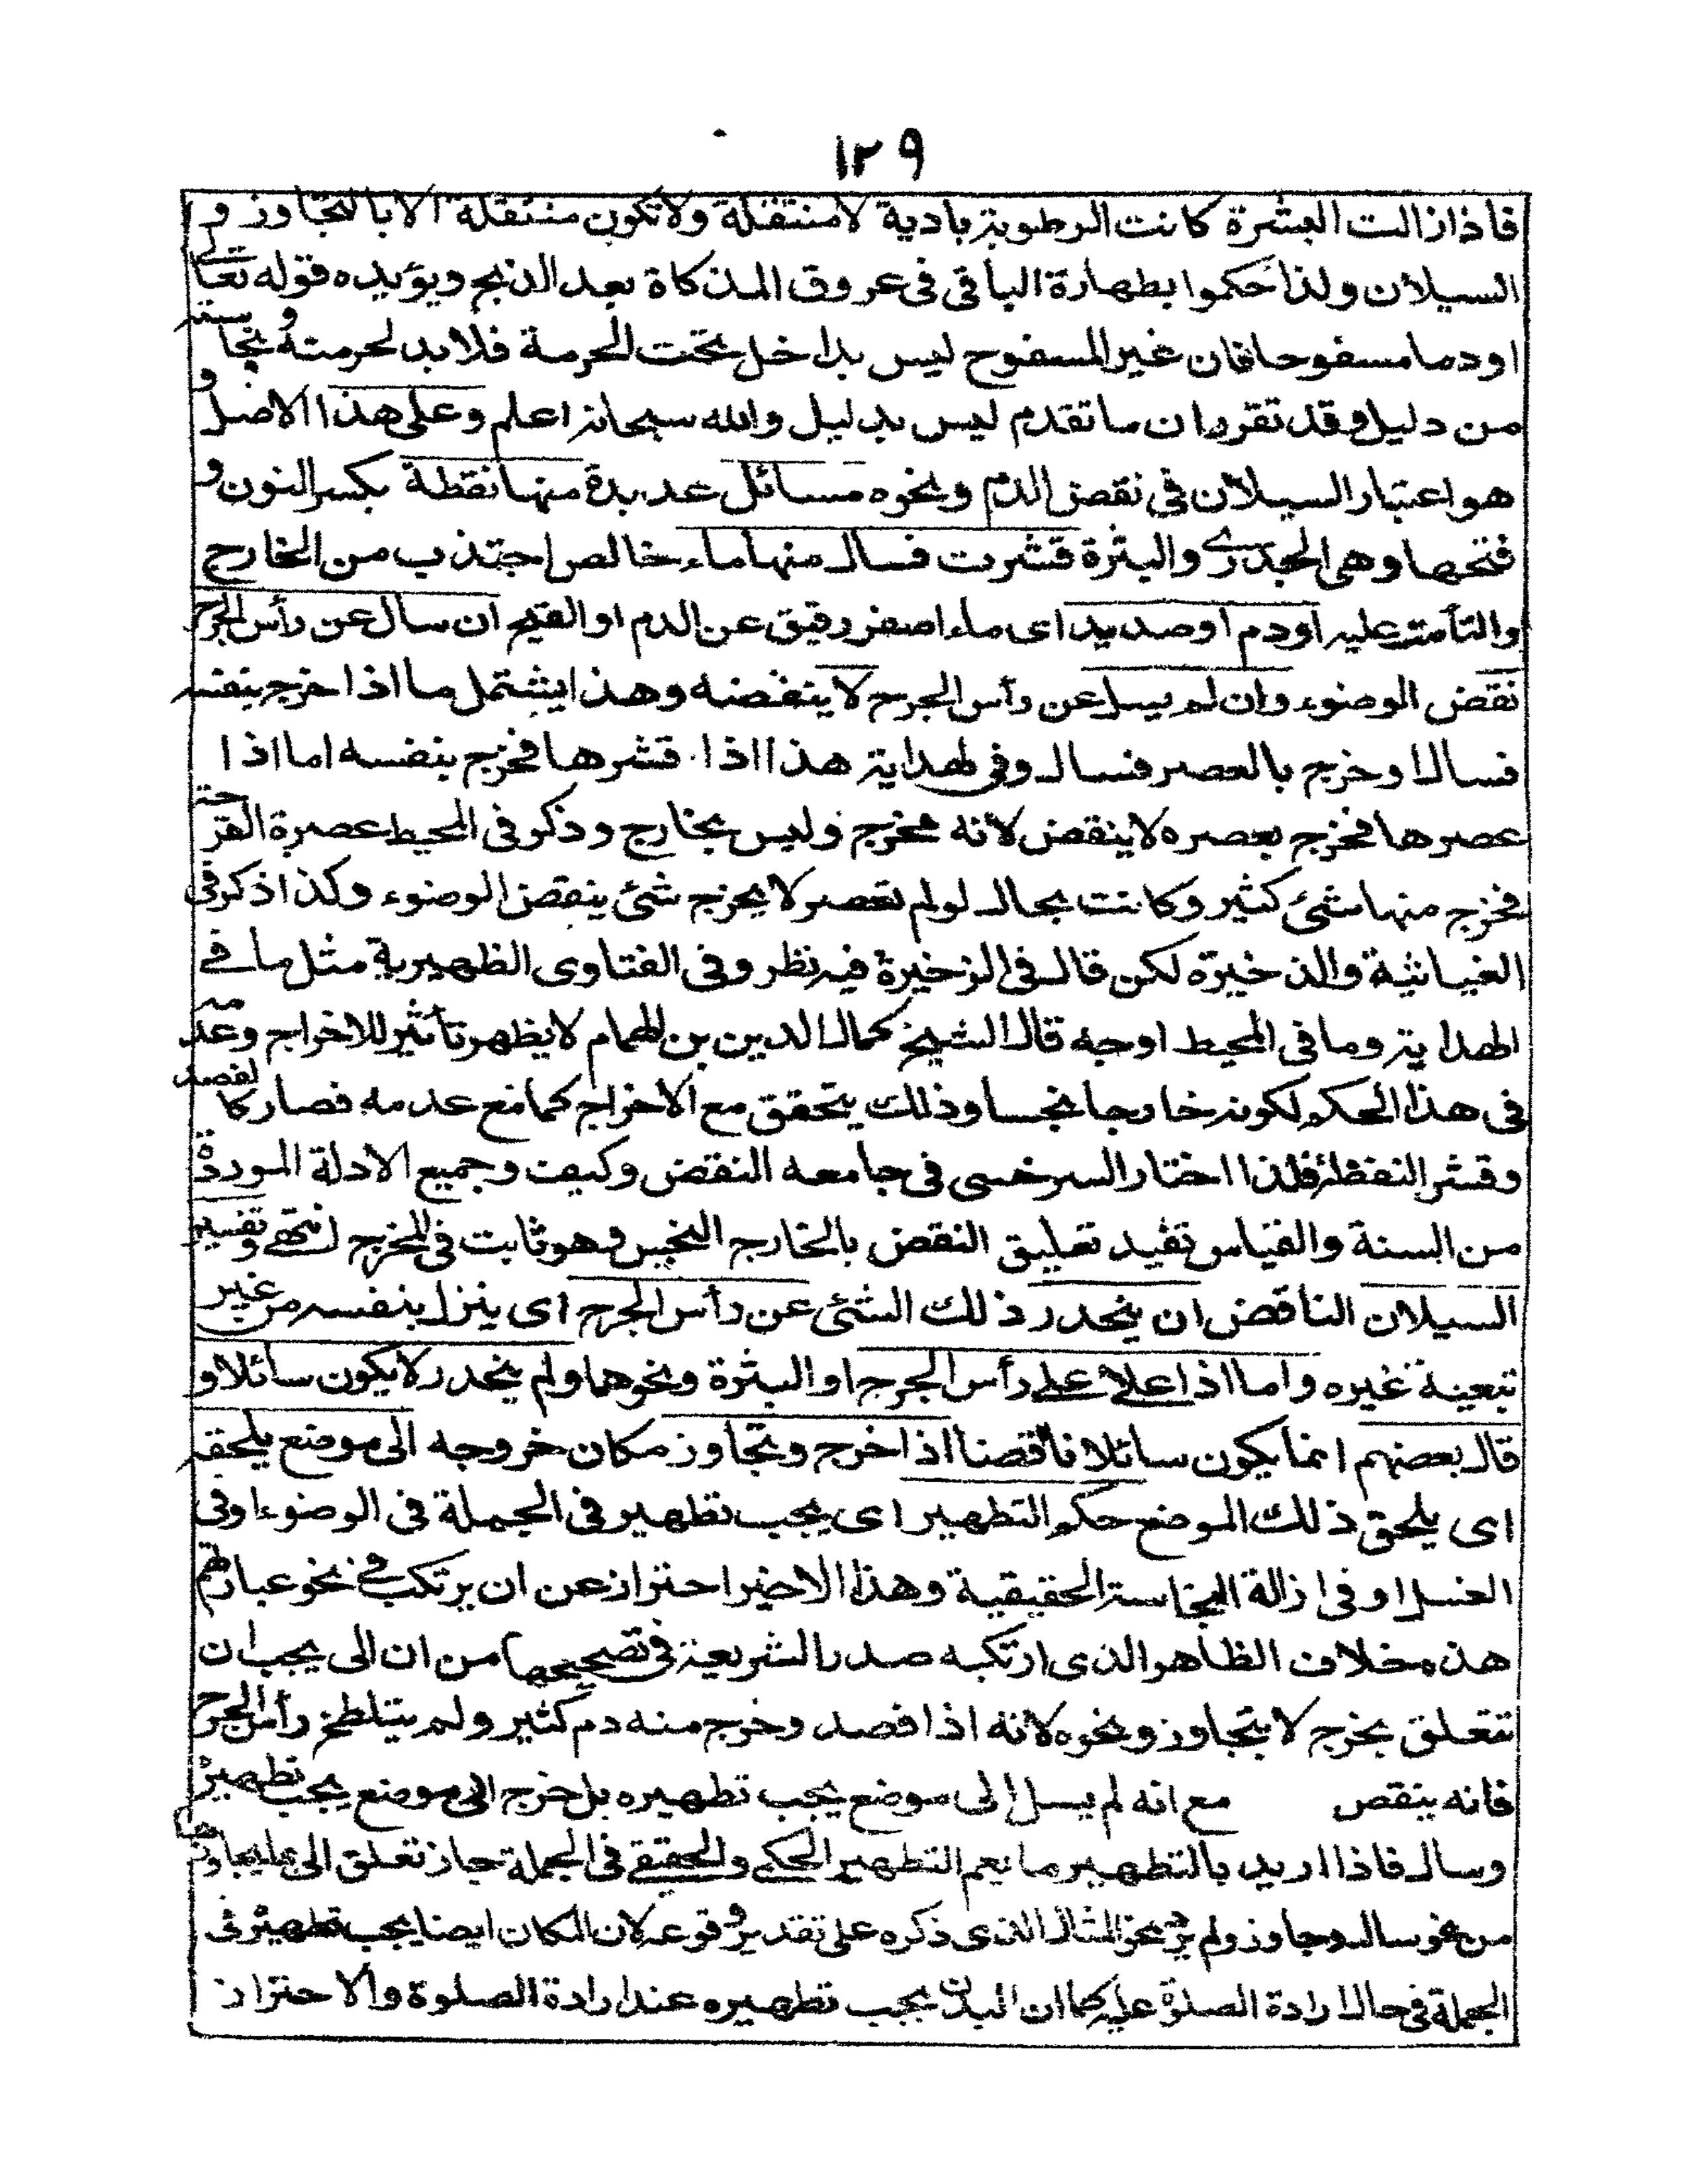 ١٢٩
فاذا زالت البشرة كانت الرطوبة بادية لا منتقلة ولا تكون منتقلة الا بالتجاوز و
السيلان ولذا حكموا بطهارة الباقى فى عروق المذكاة بعد الذبح ويؤيده قوله تعالى
او دما مسفوحا فان غير المسفوح ليس بداخل تحت الحرمة فلا بد لحرمته ونجاسته
من دليل وقد تقرر ان ما تقدم ليس بدليل والله سبحانه اعلم وعلى هذا الاصل و
هو اعتبار السيلان فى نقض الدم ونحوه مسائل عديدة منها نقطة بكسر النون و
فتحها وهى الجدرى والبثرة قشرت فسال منها ماء خالص اجتذب من الخارج
والتأمت عليه او دم او صديد اى ماء اصفر رقيق عن الدم او القيح ان سال عن رأس الجرح
نقض الوضوء وان لم يسل عن رأس الجرح لا ينقضه وهذا يشتمل ما اذا خرج بنفسه
فسال او خرج بالعصر فسال وفى الهداية هذا اذا قشرها فخرج بنفسه اما اذا
عصرها فخرج بعصره لا ينقض لانه مخرج وليس بخارج وذكر فى المحيط عصرة القرحة
فخرج منها شئ كثير وكانت بحال لو لم تعصر لا يخرج شئ ينقض الوضوء وكذا ذكر فى
الغياثية والذخيرة لكن قال فى الذخيرة فيه نظر وفى الفتاوى الظهيرية مثل ما فى
الهداية وما فى المحيط اوجه قال الشيخ كمال الدين بن الهمام لا يظهر تأثير للاخراج وعدمه
فى هذا الحكم لكونه خارجا نجسا وذلك يتحقق مع الاخراج كما مع عدمه فصار كالفصد
وقشر النفطة فلذا اختار السرخسى فى جامعه النقض وكيف وجميع الادلة الموردة
من السنة والقياس تفيد تعليق النقض بالخارج النجس وهو ثابت فى المخرج انتهى وتفسير
السيلان الناقض ان ينحدر ذلك الشئ عن رأس الجرح اى ينزل بنفسه من غير
تبعية غيره واما اذا علا على رأس الجرح او البثرة ونحوهما ولم ينحدر لا يكون سائلا و
قال بعضهم انما يكون سائلا ناقضا اذا خرج وتجاوز مكان خروجه الى موضع يلحقه
اى يلحق ذلك الموضع حكم التطهير اى يجب تطهير فى الجملة فى الوضوء او فى
الغسل او فى ازالة النجاسة الحقيقية وهذا الاخير احتراز عن ان يرتكب فى نحو عبارتهم
هذه خلاف الظاهر الذى ارتكبه صدر الشريعة فى تصحيحها من ان الى يجب ان
تتعلق بخرج لا بتجاوز ونحوه لانه اذا فصد وخرج منه دم كثير ولم يتلطخ رأس الجرح
فانه ينقض مع انه لم يسل الى موضع يجب تطهيره بل خرج الى موضع يجب تطهيره
وسال فاذا اريد بالتطهير ما يعم التطهير الحكمى والحقيقى فى الجملة جاز تعلق الى بما يجاوزها
من نحو سال وجاوز ولم يرد نحو المثال الذى ذكره على تقدير وقوعه لان المكان ايضا يجب تطهيره فى
الجملة فى حال ارادة الصلوة عليه كما ان البدن يجب تطهيره عند ارادة الصلوة والاحتراز